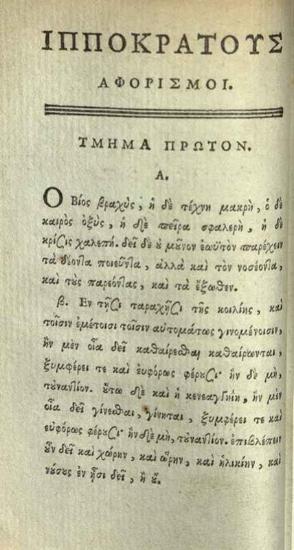 ΙΠΠΟΚΡΑΤΟΥΣ
ΑΦΟΡΙΣΜΟΙ.
ΤΜΗΜΑ ΠΡΩΤΟΝ.
Α.
Ὁ Βίος βραχὺς, ἡ δὲ τέχνη μακρὴ, ὁ δὲ
καιρὸς ὀξὺς, ἡ δὲ πεῖρα σφαλερὴ, ἡ δὲ
κρίσις χαλεπή. δεῖ δὲ ȣ̓ μόνον ἑαυτὸν παρέχειν
τὰ δέοντα ποιεῦντα, ἀλλὰ καὶ τὸν νοσέοντα,
καὶ τȣ̀ς παρεόντας, καὶ τὰ ἔξωθεν.
β. Ἐν τῇσι ταραχῇσι τῆς κοιλίης, καὶ
τοῖσιν ἐμέτοισι τοῖσιν αὐτομάτως γινομένοισιν,
ἢν μὲν οἷα δεῖ καθαίρεσθαι καθαίρωνται,
ξυμφέρει τε καὶ εὐφόρως φέρȣσι· ἢν δὲ μὴ,
τȣ̓ναντίον. ȣ̔́τω δὲ καὶ ἡ κενεαγγίη, ἢν μὲν
οἷα δεῖ γίνεσθαι, γίνηται, ξυμφέρει τε καὶ
εὐφόρως φέρȣσι· ἢν δὲ μὴ, τȣ̓ναντίον. ἐπιβλέπειν
ȣ̓͂ν δεῖ καὶ χώρην, καὶ ὥρην, καὶ ἡλικίην, καὶ
νȣ́σȣς ἐν ᾗσι δεῖ, ἢ ȣ̓́.